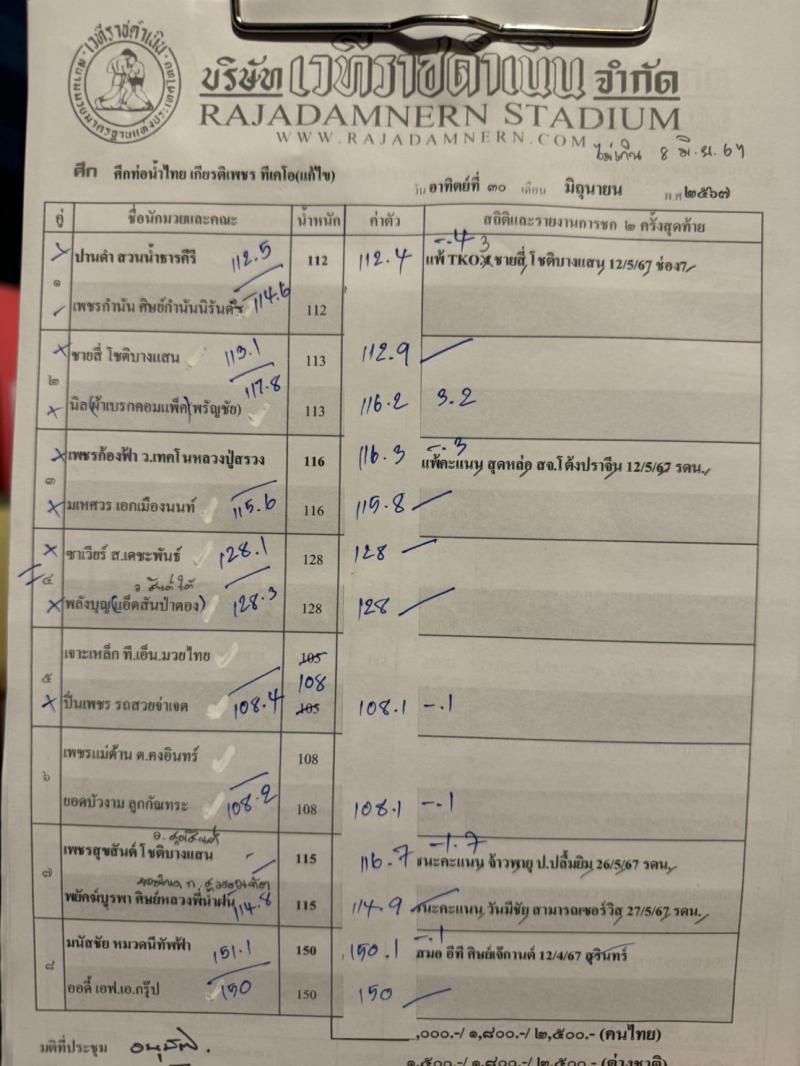 เวทีราชดำเนิน
บริษัท เวทีราชดำเนิน จำกัด
RAJADAMNERN STADIUM
WWW.RAJADAMNERN.COM
ไม่เกิน 8 มิ.ย. 67
ศึก ศึกท่อน้ำไทย เกียรติเพชร ทีเคโอ(แก้ไข) วัน อาทิตย์ที่ ๓๐ เดือน มิถุนายน พ.ศ ๒๕๖๗
คู่ ชื่อนักมวยและคณะ น้ำหนัก ค่าตัว สถิติและรายงานการชก ๒ ครั้งสุดท้าย
-.4 3
ปานดำ สวนน้ำธารคีรี 112.5 112 112.4 แพ้ TKO. ชายสี่ โชติบางแสน 12/5/67 ช่อง7
๑
เพชรกำนัน ศิษย์กำนันนิรันดร์ 114.6 112
ชายสี่ โชติบางแสน 113.1 113 112.9
๒ 117.8
นิล(ผ้าเบรกคอมแพ็ค)(พรัญชัย) 113 116.2 3.2
-.3
เพชรก้องฟ้า ว.เทคโนหลวงปู่สรวง 116 116.3 แพ้คะแนน สุดหล่อ สจ.โต้งปราจีน 12/5/67 รดน.
๓
มเหศวร เอกเมืองนนท์ 115.6 116 115.8
ซาเวียร์ ส.เดชะพันธ์ 128.1 128 128
๔
พลังบุญ(แอ็ดสันป่าตอง) 128.3 128 128
เจาะเหล็ก ที.เอ็น.มวยไทย 105
๕ 108
ปิ่นเพชร รถสวยจ่าเจต 108.4 105 108.1 -.1
เพชรแม่ด้าน ต.คงอินทร์ 108
๖
ยอดบัวงาม ลูกกัณทระ 108.2 108 108.1 -.1
-1.7
เพชรสุขสันต์ โชติบางแสน 115 116.7 ชนะคะแนน จ้าวพายุ ป.ปลื้มยิม 26/5/67 รดน.
๗
พยัคฆ์บูรพา ศิษย์หลวงพี่น้ำฝน 114.8 115 114.9 ชนะคะแนน วันมีชัย สามารถเซอร์วิส 27/5/67 รดน.
-.1
มนัสชัย หมวดนีทัพฟ้า 151.1 150 150.1 สมอ อีที ศิษย์เจ๊กานต์ 12/4/67 สุรินทร์
๘
ออดี้ เอฟ.เอ.กรุ๊ป 150 150 150
,๐๐๐.-/ ๑,๘๐๐.-/ ๒,๕๐๐.- (คนไทย)
มติที่ประชุม อนุมัติ.
๑,๕๐๐.-/ ๑,๘๐๐.-/ ๒,๕๐๐.- (ต่างชาติ)